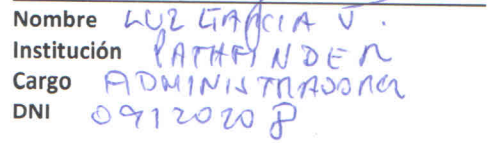 Nombre LUZ GARCIA V.
Institución PATHFINDER
Cargo ADMINISTRADORA
DNI 09120208